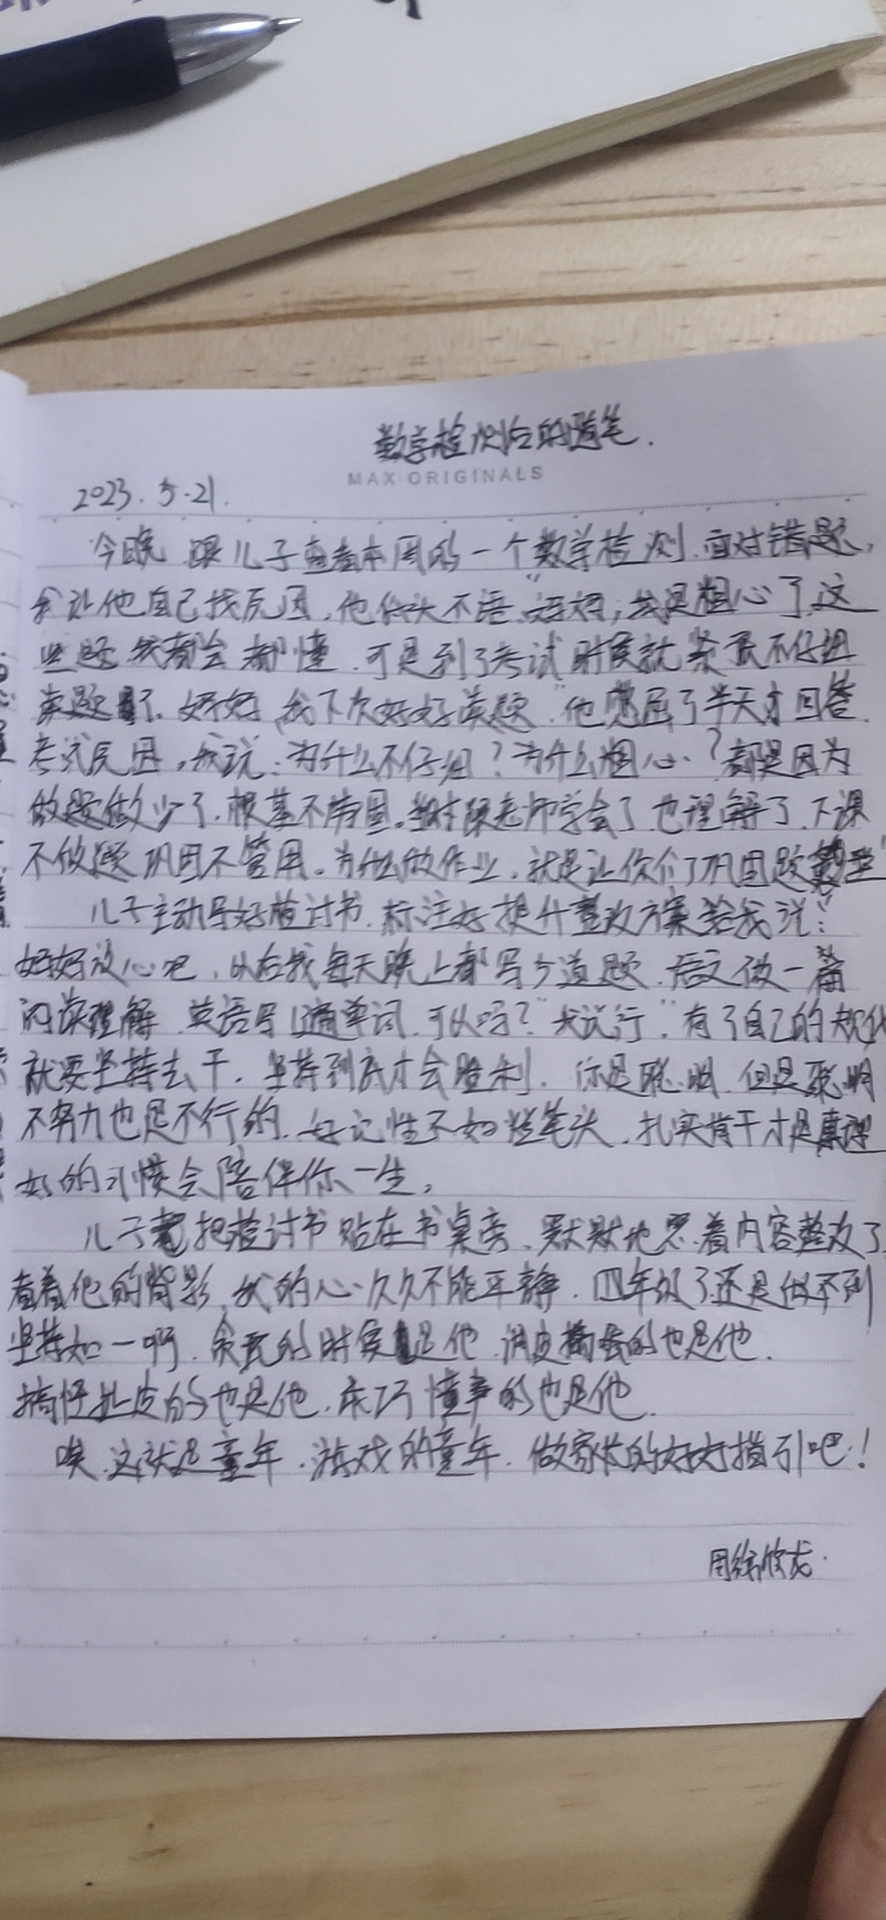 数学检测后的随笔.
MAX ORIGINALS
2023.5.21.
今晚 跟儿子查看本周的一个数学检测.面对错题,
我让他自己找原因,他低头不语."妈妈,我是粗心了.这
些题我都会都懂.可是到了考试时候就紧张不仔细
读题了.妈妈,我下次好好读题."他憋屈了半天才回答
考试原因,我说:为什么不仔细?为什么粗心?都是因为
做题做少了.根基不牢固。当时跟老师学会了也理解了.下课
不做题巩固不管用。为什么做作业,就是让你们了巩固题类型
儿子主动写好检讨书.标注好提升整改方案给我说:"
妈妈放心吧,以后我每天晚上都写5道题.语文做一篇
阅读理解 英语写1通单词.可以吗?"我说行"有了自己的规化
就要坚持去干.坚持到底才会胜利.你是聪明.但是聪明
不努力也是不行的.好记性不如烂笔头.扎实肯干才是真理
好的习惯会陪伴你一生。
儿子把检讨书贴在书桌旁.默默地思着内容整改了
看着他的背影,我的心久久不能平静.四年级了还是做不到
坚持如一啊.贪玩的时候是他.调皮捣蛋的也是他.
搞怪扯皮的也是他.乖巧懂事的也是他.
唉.这就是童年.游戏的童年.做家长的好好指引吧!